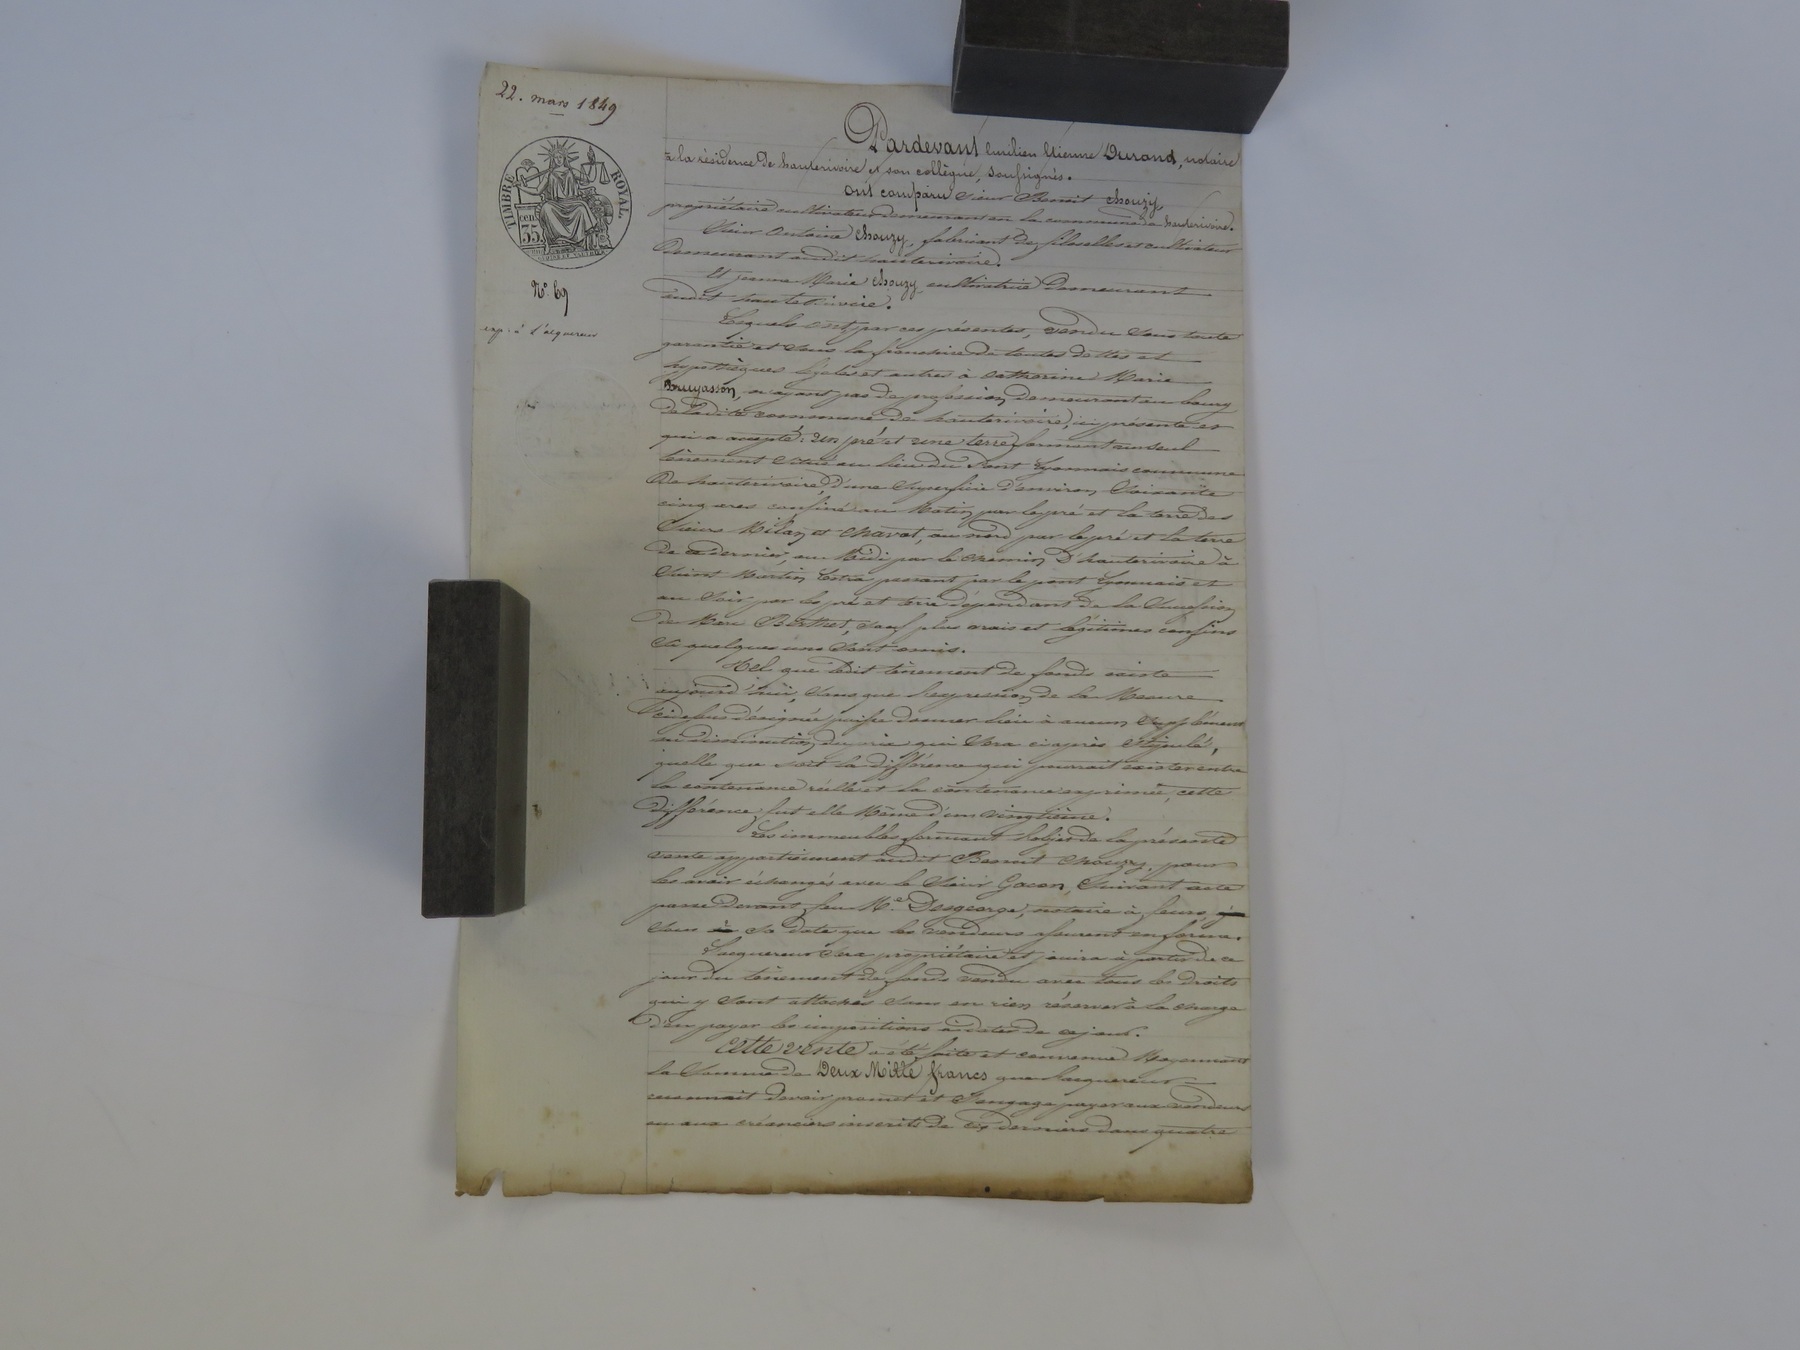 22. mars 1849
TIMBRE ROYAL.
cent
35.
N° 69
exp. à l'acquereur
Pardevant Emilien Etienne Durand, notaire
à la résidence de hauterivoire et son collègue, soussignés.
Ont comparu sieur Benoit Chouzy,
propriétaire cultivateur demeurant en la commune de hauterivoire.
Sieur Antoine Chouzy, fabricant de filoselles et cultivateur
demeurant audit hauterivoire.
Et jeanne Marie Chouzy cultivatrice demeurant
audit hauterivoire.
Lequels ont, par ces présentes, vendu sous toute
garantie et sous la franchise de toutes dettes et
hypothèques légales et autres à Catherine Marie
n'ayant pas de profession, demeurant au bourg
de ladite commune de hauterivoire, ici présente et
qui a accepté: un pré et une terre formant un seul
tènement situé au lieu du Pont Lyonnais commune
de hauterivoire, d'une superficie d'environ soixante
cinq ares confiné au Matin par le pré et la terre des
sieurs Milan et Chavot, au nord par le pré et la terre
de ce dernier, au Midi par le chemin d'hauterivoire à
Saint Martin Lestra passant par le pont Lyonnais et
au soir par les pré et terre dépendant de la succession
de Marc Berthet, sauf plus vrais et légitimes confins
si quelques uns sont omis.
Tel que ledit tènement de fonds existe
aujourd'hui, sans que l'expression de la Mesure
ci dessus désignée puisse donner lieu à aucun supplément
ou diminution du prix qui sera ci après stipulé,
quelle que soit la différence qui pourrait exister entre
la contenance réelle et la contenance exprimée, cette
différence fut elle Même d'un vingtième.
Les immeubles formant l'objet de la présente
vente appartiennent audit Benoit Chouzy, pour
les avoir échangés avec le sieur Gacon, suivant acte
passé devant feu Me Desgeorge, notaire à feurs,
sous sa date que les vendeurs assurent en forme.
L'acquereur sera propriétaire et jouira à partir de ce
jour du tènement de fonds vendu avec tous les droits
qui y sont attachés sans en rien réserver à la charge
d'en payer les impositions à dater de ce jour.
Cette vente a été faite et convenue Moyennant
la somme de Deux Mille francs que l'acquereur
reconnait devoir promet et s'engage payer aux vendeurs
ou aux créanciers inscrits de ces derniers dans quatre